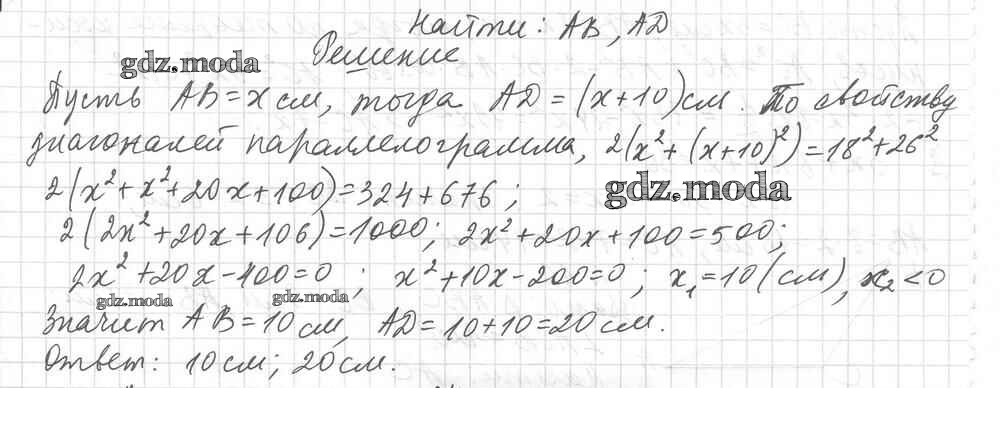 Найти: AB, AD
Решение
gdz.moda
Пусть AB = x см, тогда AD = (x+10) см. По свойству
диагоналей параллелограмма, 2(x²+(x+10)²)=18²+26²
2(x²+x²+20x+100)=324+676;
gdz.moda
2(2x²+20x+106)=1000; 2x²+20x+100=500;
2x²+20x-400=0; x²+10x-200=0; x₁=10(см), x₂<0
gdz.moda
gdz.moda
Значит AB=10см, AD=10+10=20см.
Ответ: 10см; 20см.